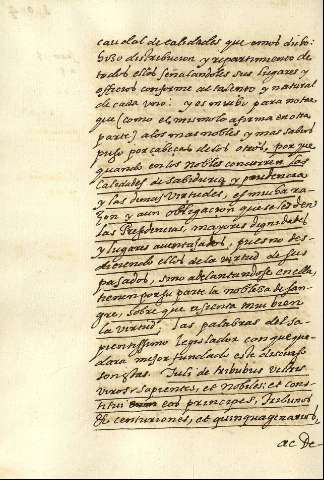 caudal de calidades que emos dicho:
hizo distribucion y repartimiento de
todos ellos señalandoles sus lugares y
officios conforme al talento y natural
de cada uno: y es mucho para notar,
que (como el mismo lo afirma en otra
parte) a los mas nobles y mas sabios
puso por cabeças de los otros, porque
quando en los nobles concurren las
calidades de sabiduria y prudencia
y las demas virtudes, es mucha ra-
zon y aun obligacion que se les den
las Presidencias, mayores dignidades
y lugares aventajados, pues no des-
diciendo ellos de la virtud de sus
pasados, sino adelantandose en ella,
tienen por su parte la nobleza de san-
gre, sobre que asienta mui bien
la virtud; las palabras del sa-
pientissimo legislador con que que-
dara mejor fundado este discurso
son estas. Tuli de tribubus vestris
viros sapientes, et nobiles: et const
titui eos principes, Tribunos
et centuriones, et quinquagenarios,
ac De-